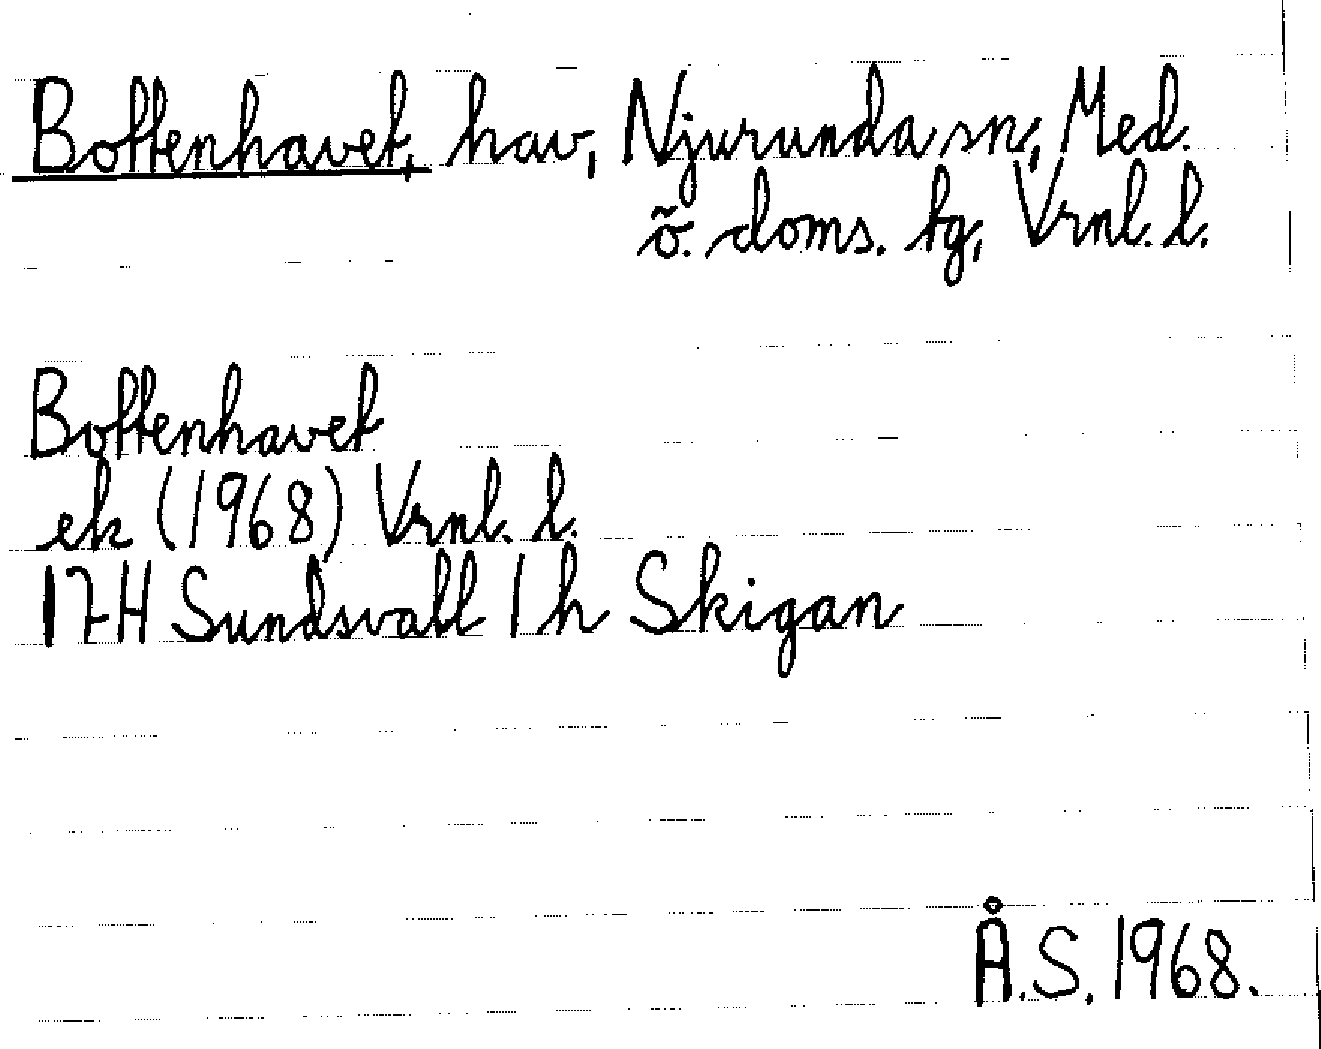 Bottenhavet, hav, Njurunda sn, Med.
ö. doms. tg, Vrnl. l.
Bottenhavet
ek (1968) Vrnl. l.
17H Sundsvall 1 h Skigan
Å.S. 1968.